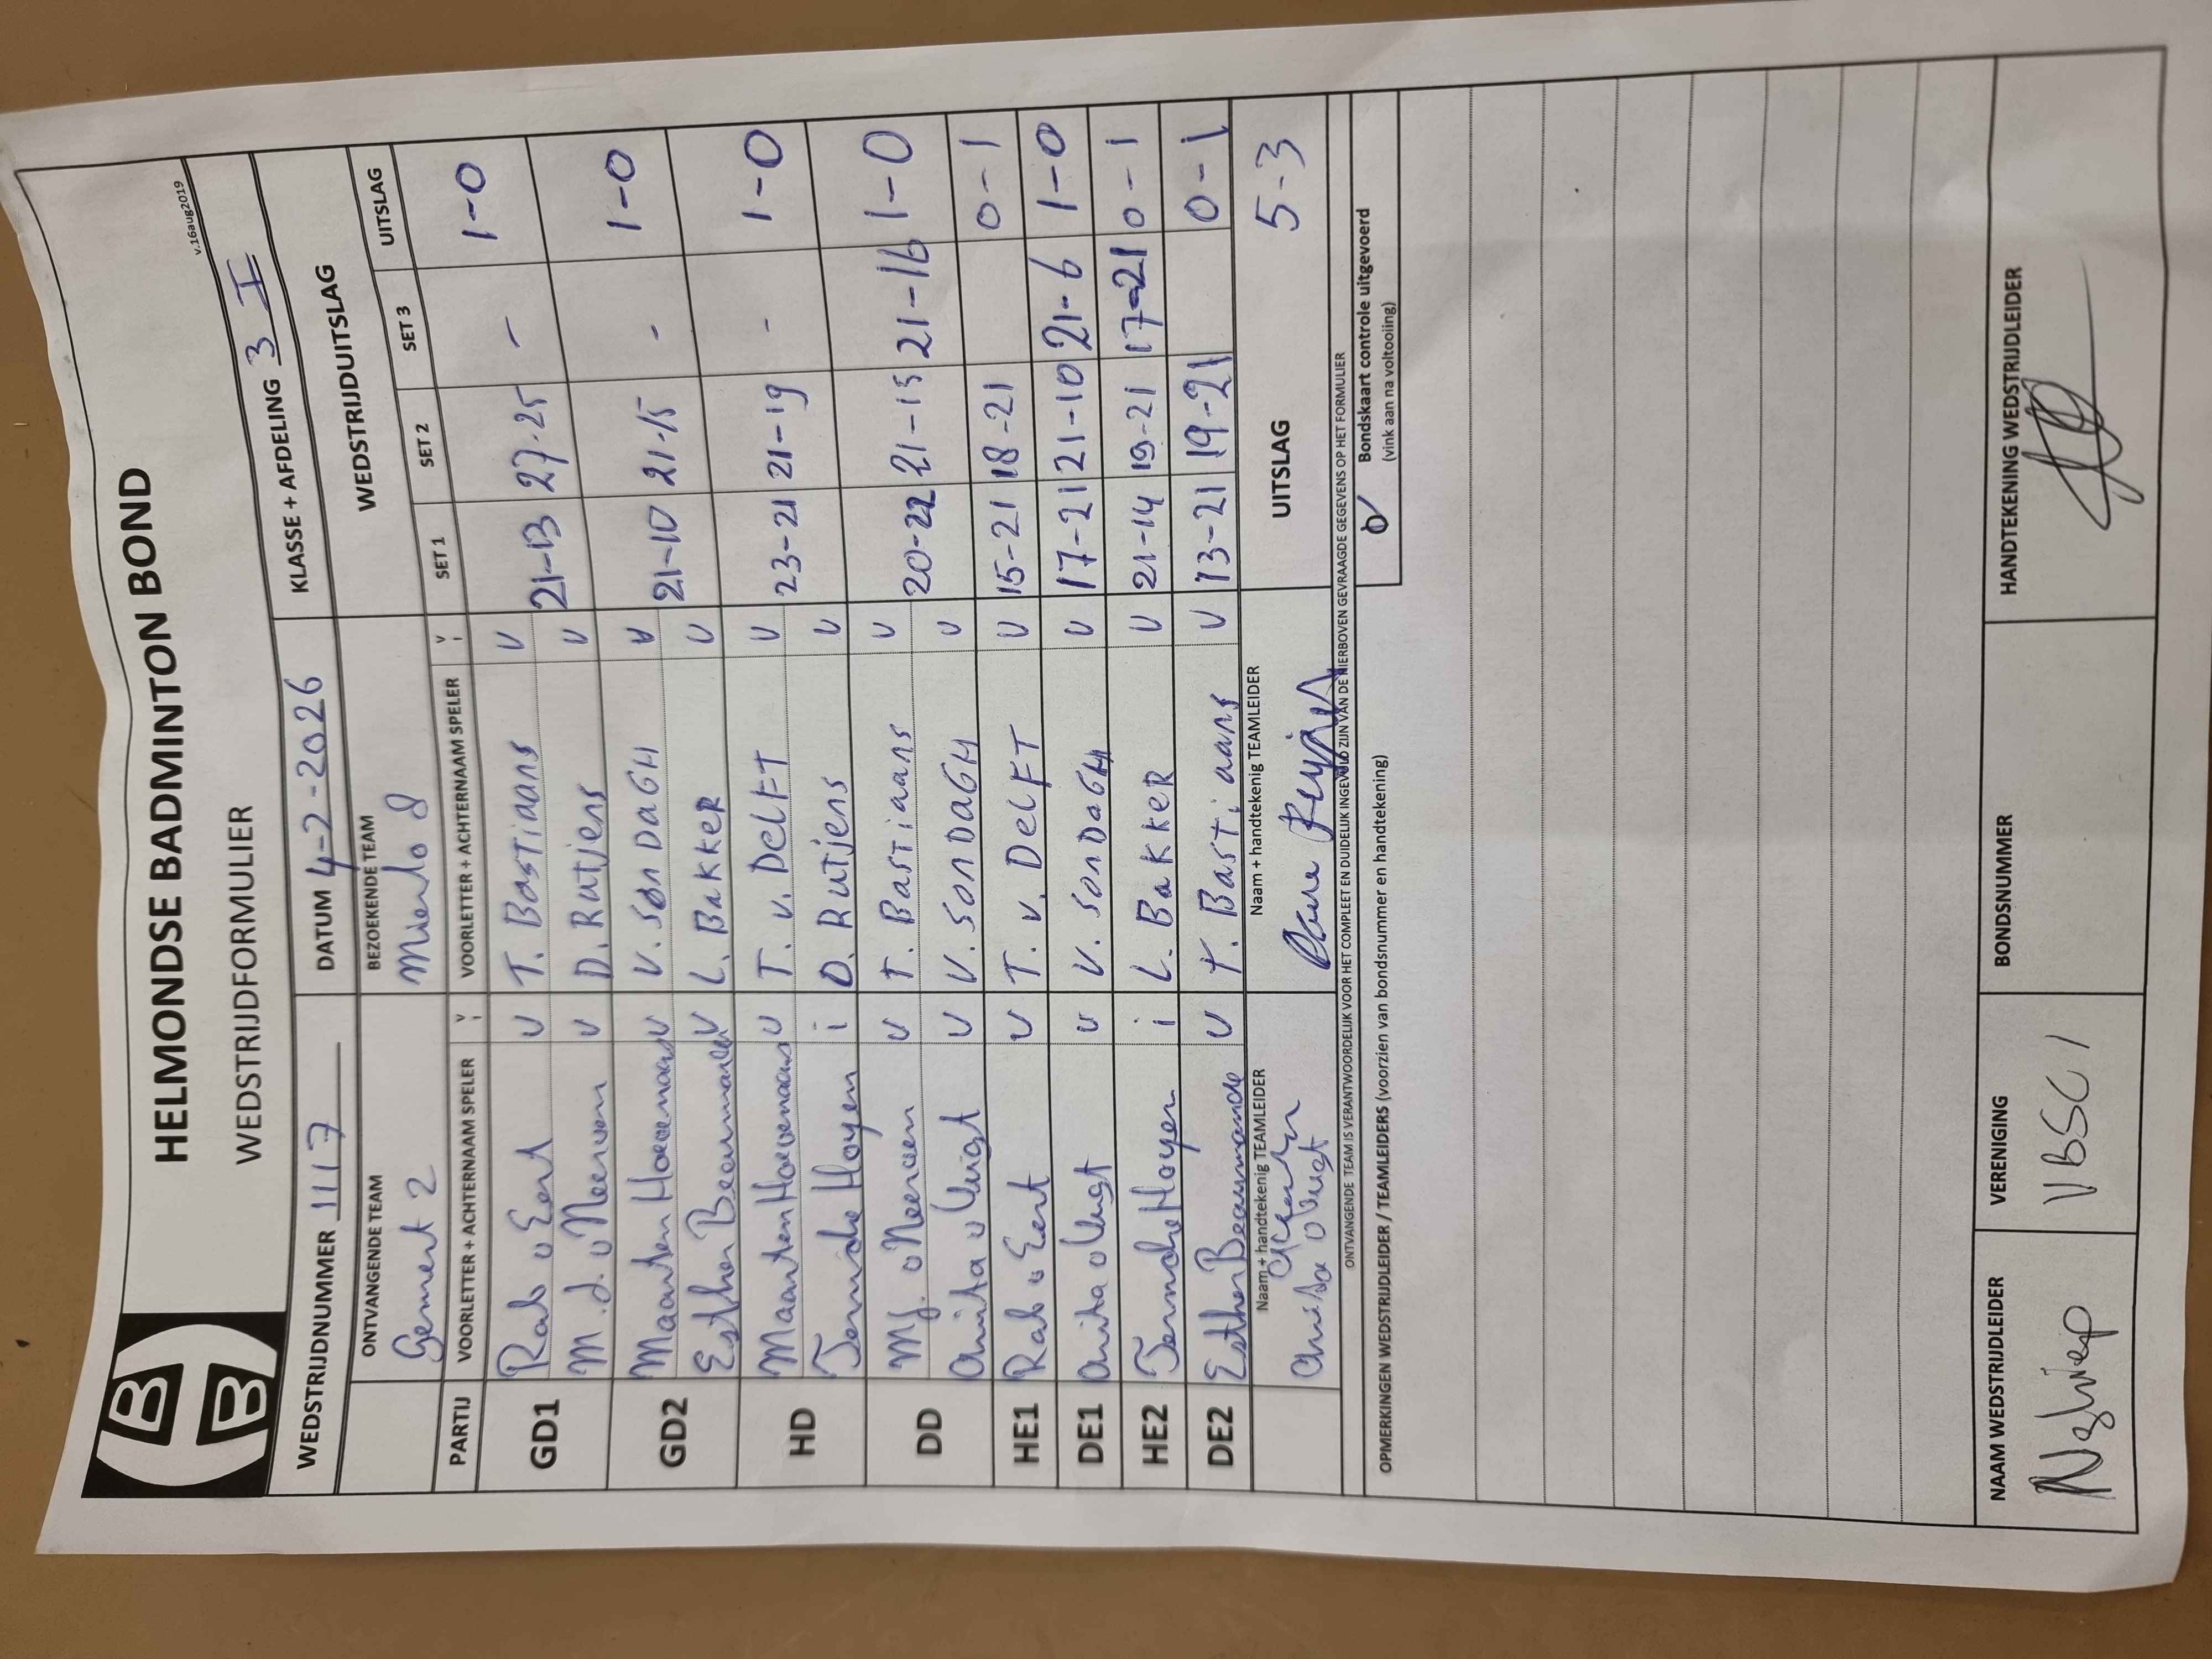 HELMONDSE BADMINTON BOND
WEDSTRIJDFORMULIER
v.16aug2019
WEDSTRIJDNUMMER 1117 DATUM 4-2-2026 KLASSE + AFDELING 3 I
ONTVANGENDE TEAM BEZOEKENDE TEAM WEDSTRIJDUITSLAG
Gemert 2 Mierlo 8
PARTIJ VOORLETTER + ACHTERNAAM SPELER V i VOORLETTER + ACHTERNAAM SPELER V i SET 1 SET 2 SET 3 UITSLAG
GD1 Rob v Eert v T. Bastiaans v 21-13 27-25 - 1-0
M.J. v Meerven v D. Rutjens v
GD2 Maarten Hoevenaars v V. SonDaGH v 21-10 21-15 - 1-0
Esther v L. BakkeR v
HD Maarten Hoevenaars v T. v. DelFT v 23-21 21-19 - 1-0
Hoyen i D. Rutjens v
DD MJ. v Meerven v T. Bastiaans v 20-22 21-15 21-16 1-0
Anita v Vugt v V. SonDaGH v
HE1 Rob v Eert v T. v. DelFT v 15-21 18-21 0-1
DE1 Anita v Vugt v V. SonDaGH v 17-21 21-10 21-6 1-0
HE2 Hoyen i L. BakkeR v 21-14 19-21 17-21 0-1
DE2 Esther v T. Bastiaans v 13-21 19-21 0-1
Naam + handtekenig TEAMLEIDER Naam + handtekenig TEAMLEIDER UITSLAG 5-3
Anita v Vugt
ONTVANGENDE TEAM IS VERANTWOORDELIJK VOOR HET COMPLEET EN DUIDELIJK INGEVULD ZIJN VAN DE HIERBOVEN GEVRAAGDE GEGEVENS OP HET FORMULIER
OPMERKINGEN WEDSTRIJDLEIDER / TEAMLEIDERS (voorzien van bondsnummer en handtekening)
Bondskaart controle uitgevoerd
(vink aan na voltooiing)
NAAM WEDSTRIJDLEIDER VERENIGING BONDSNUMMER HANDTEKENING WEDSTRIJDLEIDER
VBSC1